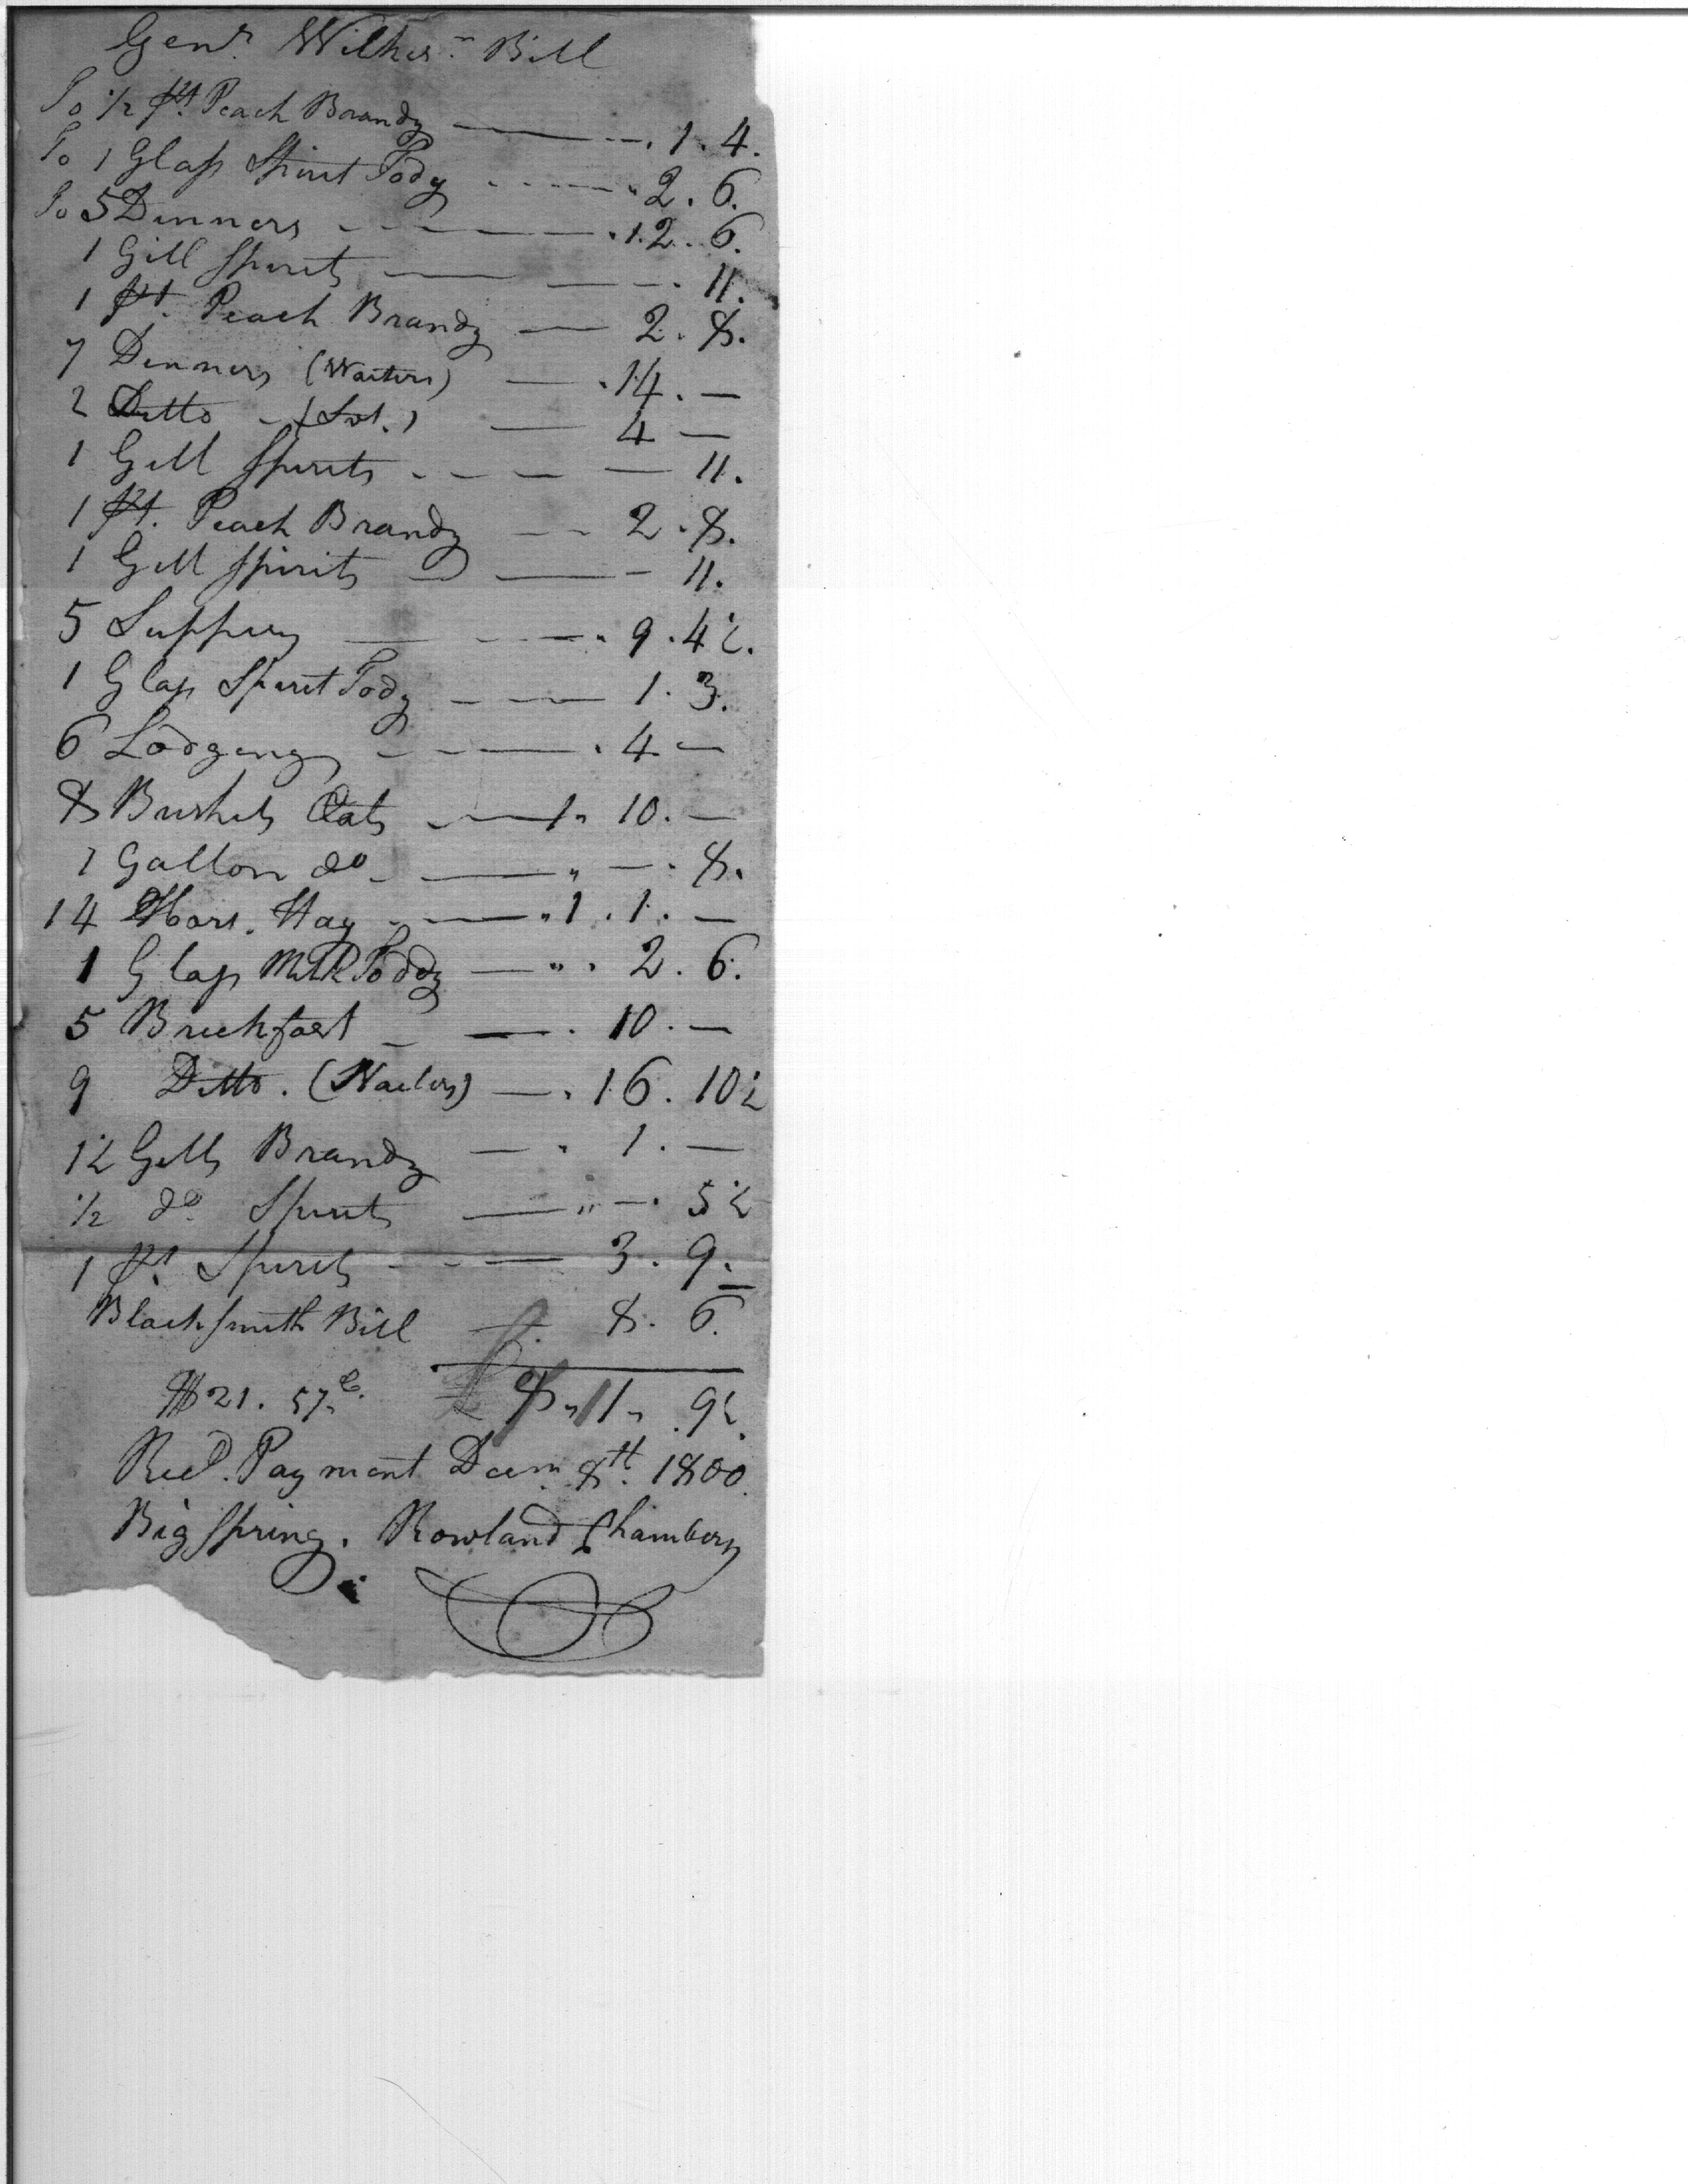 Genr. Wilkis.n Bill
To 1/2 pt. Peach Brandy 1. 4.
To 1 Glass Spirit Tody 2. 6.
To 5 Dinners 12. 6.
1 Gill Spirits 11.
1 pt. Peach Brandy 2. 8.
7 Dinners (Waiters) 14. —
2 Ditto 4 —
1 Gill Spirits 11.
1 pt. Peach Brandy 2. 8.
1 Gill Spirits 11.
5 Suppers 9. 4½.
1 Glass Spirit Tody 1. 3.
6 Lodgings 4 —
8 Bushels Oats 1. 10. —
1 Gallon do 8.
14 Hors. Hay 1. 1. —
1 Glass Milk Toddy 2. 6.
5 Breekfast 10. —
9 Ditto. (Waiters) 16. 10½
1½ Gills Brandy 1. —
1/2 do. Spirits 5½
1 pt Spirits 3. 9.
Blacksmith Bill 8. 6.
$21. 57 c. £ 8. 11. 9½.
Recd. Payment Decm 8th. 1800.
Big Spring. Rowland Chambers